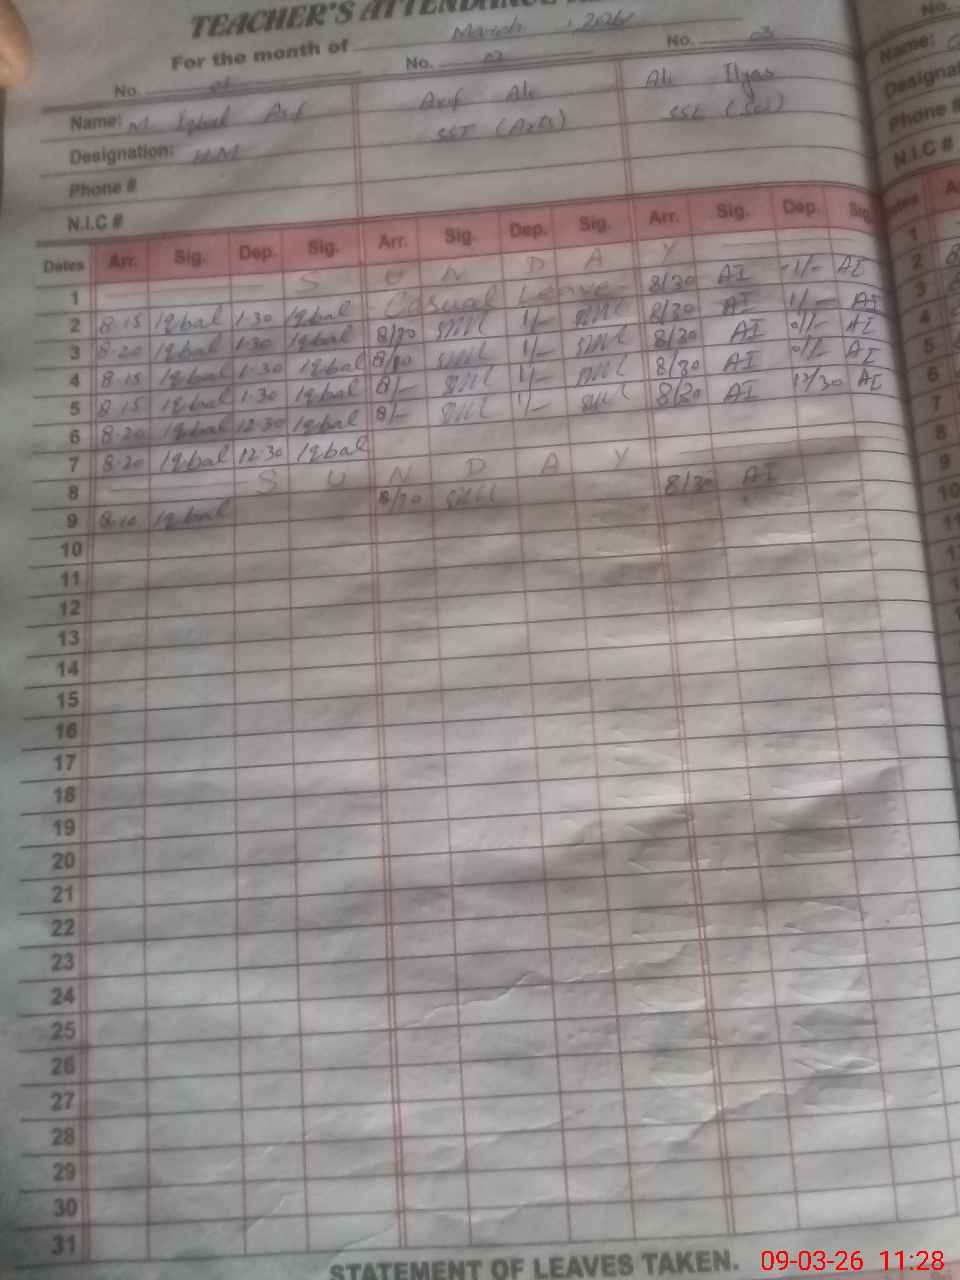 TEACHER'S ATTENDANCE
For the month of March 2026
No. 01 No. 02 No. 03
Name: M. Iqbal Arif Arif Ali Ali Ilyas
Designation: HM SST (Arts) SSE (Sci)
Phone #
N.I.C #
Dates Arr. Sig. Dep. Sig. Arr. Sig. Dep. Sig. Arr. Sig. Dep. Sig.
1 S U N D A Y
2 8-15 Iqbal 1-30 Iqbal Casual Leave 8/30 AI 1/- AI
3 8-20 Iqbal 1-30 Iqbal 8/30 1/- 8/30 AI 1/- AI
4 8-15 Iqbal 1-30 Iqbal 8/30 1/- 8/30 AI 01/- AI
5 8-15 Iqbal 1-30 Iqbal 8/- 1/- 8/30 AI AI
6 8-20 Iqbal 12-30 Iqbal 8/- 1/- 8/30 AI 12/30 AI
7 8-20 Iqbal 12-30 Iqbal
8 S U N D A Y
9 8-10 Iqbal 8/30 8/30 AI
10
11
12
13
14
15
16
17
18
19
20
21
22
23
24
25
26
27
28
29
30
31
STATEMENT OF LEAVES TAKEN.
09-03-26 11:28
No.
Name:
Phone #
N.I.C #
1
2
3
4
5
6
7
8
9
10
11